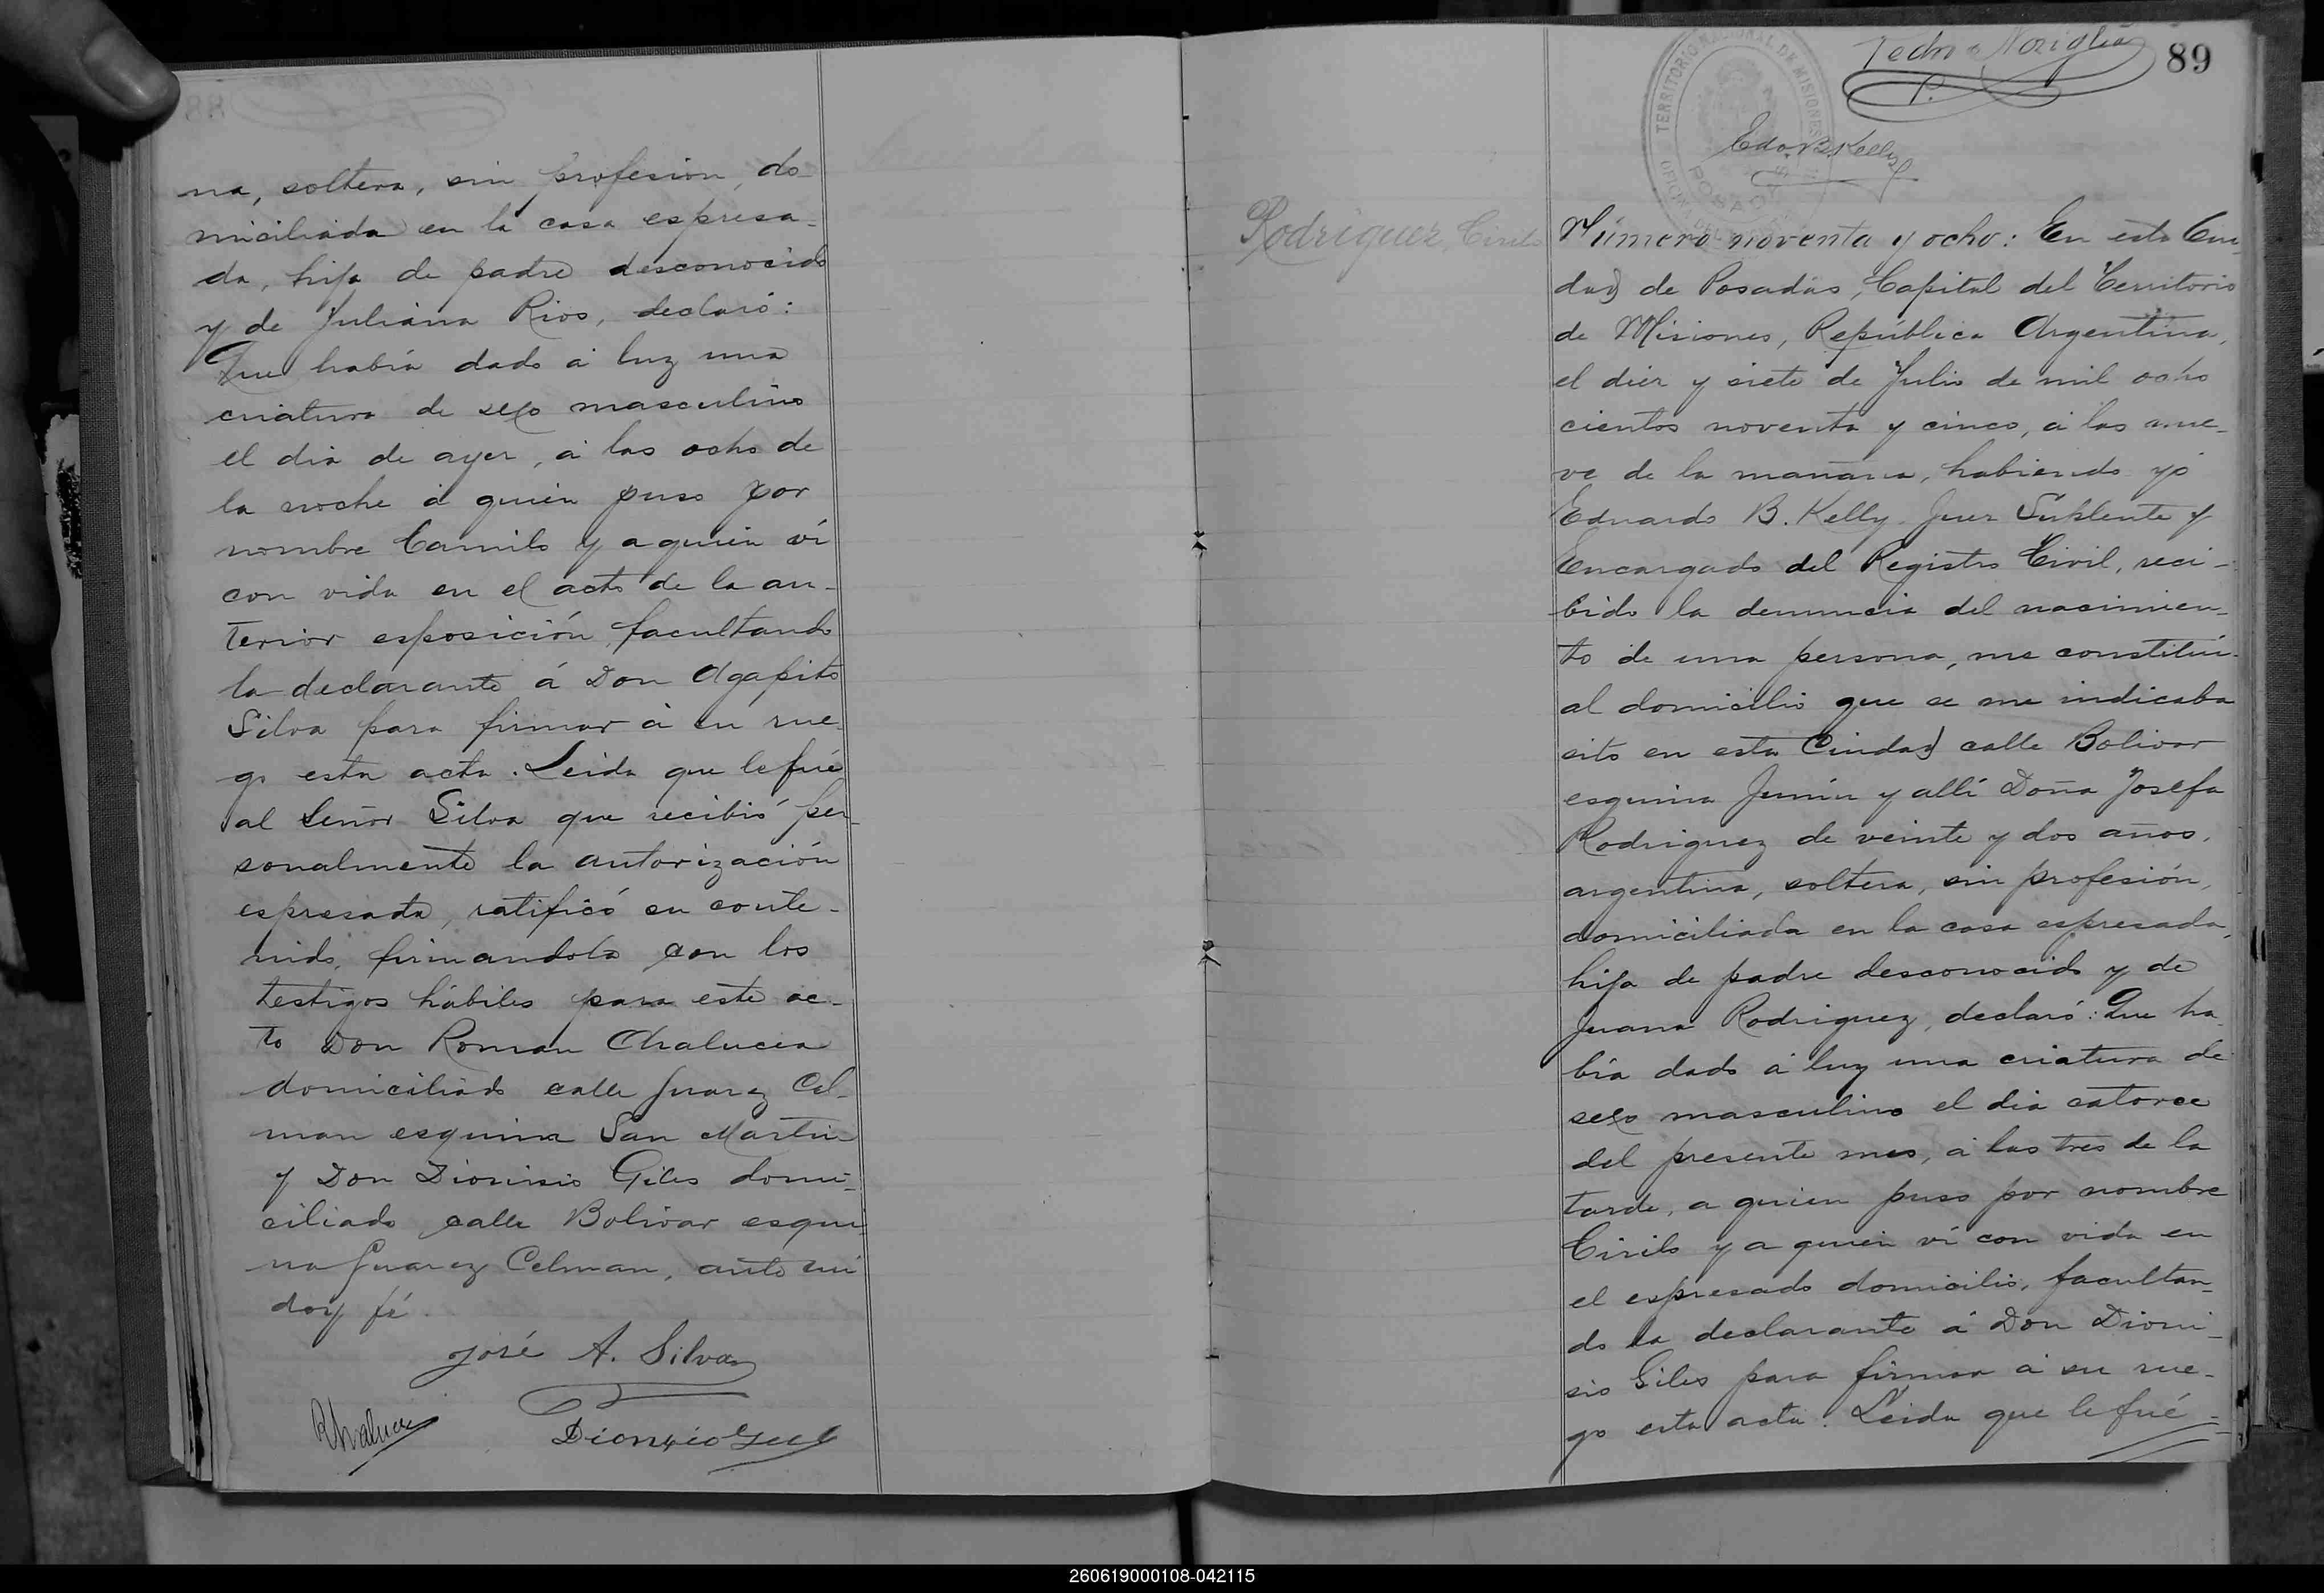 na, soltera, sin profesión, do-
miciliada en la casa espresa-
da, hija de padre desconocido
y de Juliana Rios, declaró:
Que había dado á luz una
criatura de sexo masculino
el dia de ayer, á las ocho de
la noche á quien puso por
nombre Camilo y a quien ví
con vida en el acto de la an-
terior esposición, facultando
la declarante á Don Agapito
Silva para firmar á su rue-
go esta acta. Leida que le fué
al Señor Silva que recibió per-
sonalmente la autorización
espresada, ratificó su conte-
nido, firmandola con los
testigos hábiles para este ac-
to Don Roman Chalucea
domiciliado calle Juarez Cel-
man esquina San Martin
y Don Dionisio Giles domi-
ciliado calle Bolivar esqui-
na Juarez Celman, ante mí
doy fé.
José A. Silva
89
TERRITORIO NACIONAL DE MISIONES
POSADAS
Edo. B. Kelly
Rodriguez, Cirilo
Número noventa y ocho: En esta Ciu-
dad de Posadas, Capital del Territorio
de Misiones, República Argentina,
el diez y siete de Julio de mil ocho
cientos noventa y cinco, á las nue-
ve de la mañana, habiendo yó
Eduardo B. Kelly Juez Suplente y
Encargado del Registro Civil, reci-
bido la denuncia del nacimien-
to de una persona, me constituí
al domicilio que se me indicaba
sito en esta Ciudad calle Bolivar
esquina Junin y allí Doña Josefa
Rodriguez de veinte y dos años,
argentina, soltera, sin profesión,
domiciliada en la casa espresada,
hija de padre desconocido y de
Juana Rodriguez, declaró: Que ha-
bía dado á luz una criatura de
sexo masculino el dia catorce
del presente mes, á las tres de la
tarde, a quien puso por nombre
Cirilo y a quien ví con vida en
el espresado domicilio, facultan-
do la declarante á Don Dioni-
sio Giles para firmar á su rue-
go esta acta. Leida que le fué
260619000108-042115